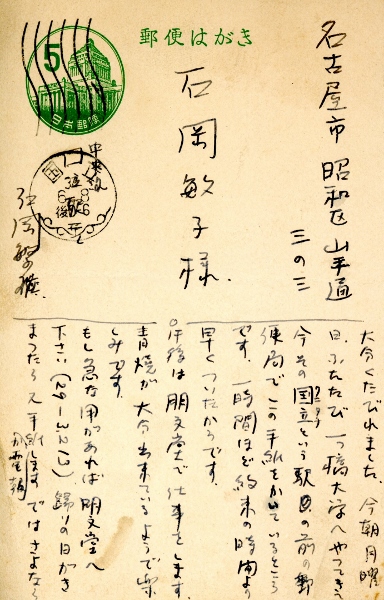 郵便はがき
5
日本郵便
名古屋市 昭和区 山手通
三の三
石岡敏子様
中央線
国立駅にて
石岡繁雄
大分くたびれました。今朝月曜
日、ふたたび一つ橋大学へやってきま
今その国立という駅の前の郵
便局でこの手紙をかいているところ
です。一時間ほど約束の時間より
早くついたからです。
午後は朋文堂で仕事をします。
青焼が大分出来てるようで楽
しみです。
もし急な用があれば朋文堂へ
下さい(29-3261) 帰りの日がき
まったら又手紙します ではさよなら
月曜朝